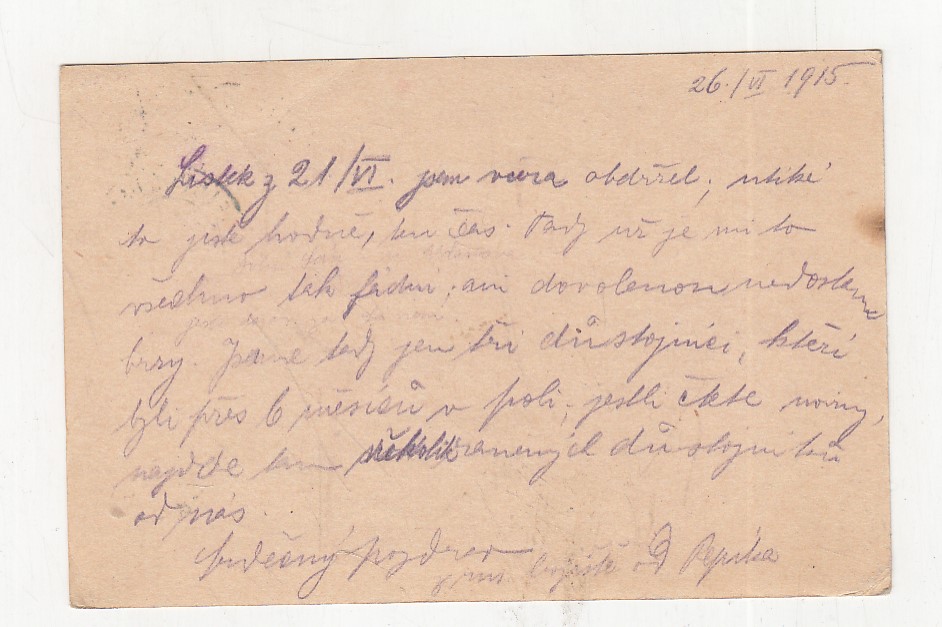 26./VI 1915.
Lístek z 21/VI. jsem včera obdržel, utíká
to jistě hodně, ten čas. Tady už je mi to
všechno tak fádní, ani dovolenou nedostanu
brzy. Jsme tady jen tři důstojníci, kteří
byli přes 6 měsíců v poli, jestli čtete noviny,
najdete tam několik raněných důstojníků
od nás.
Srdečný pozdrav
od Pepíka